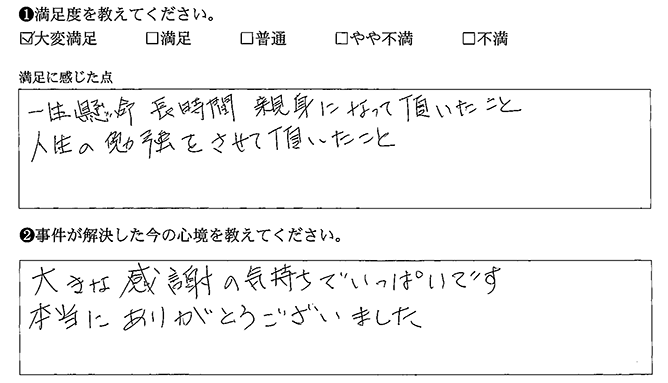 ❶満足度を教えてください。
☑大変満足 □満足 □普通 □やや不満 □不満
満足に感じた点
一生懸命 長時間 親身になって頂いたこと
人生の勉強をさせて頂いたこと
❷事件が解決した今の心境を教えてください。
大きな感謝の気持ちでいっぱいです
本当にありがとうございました